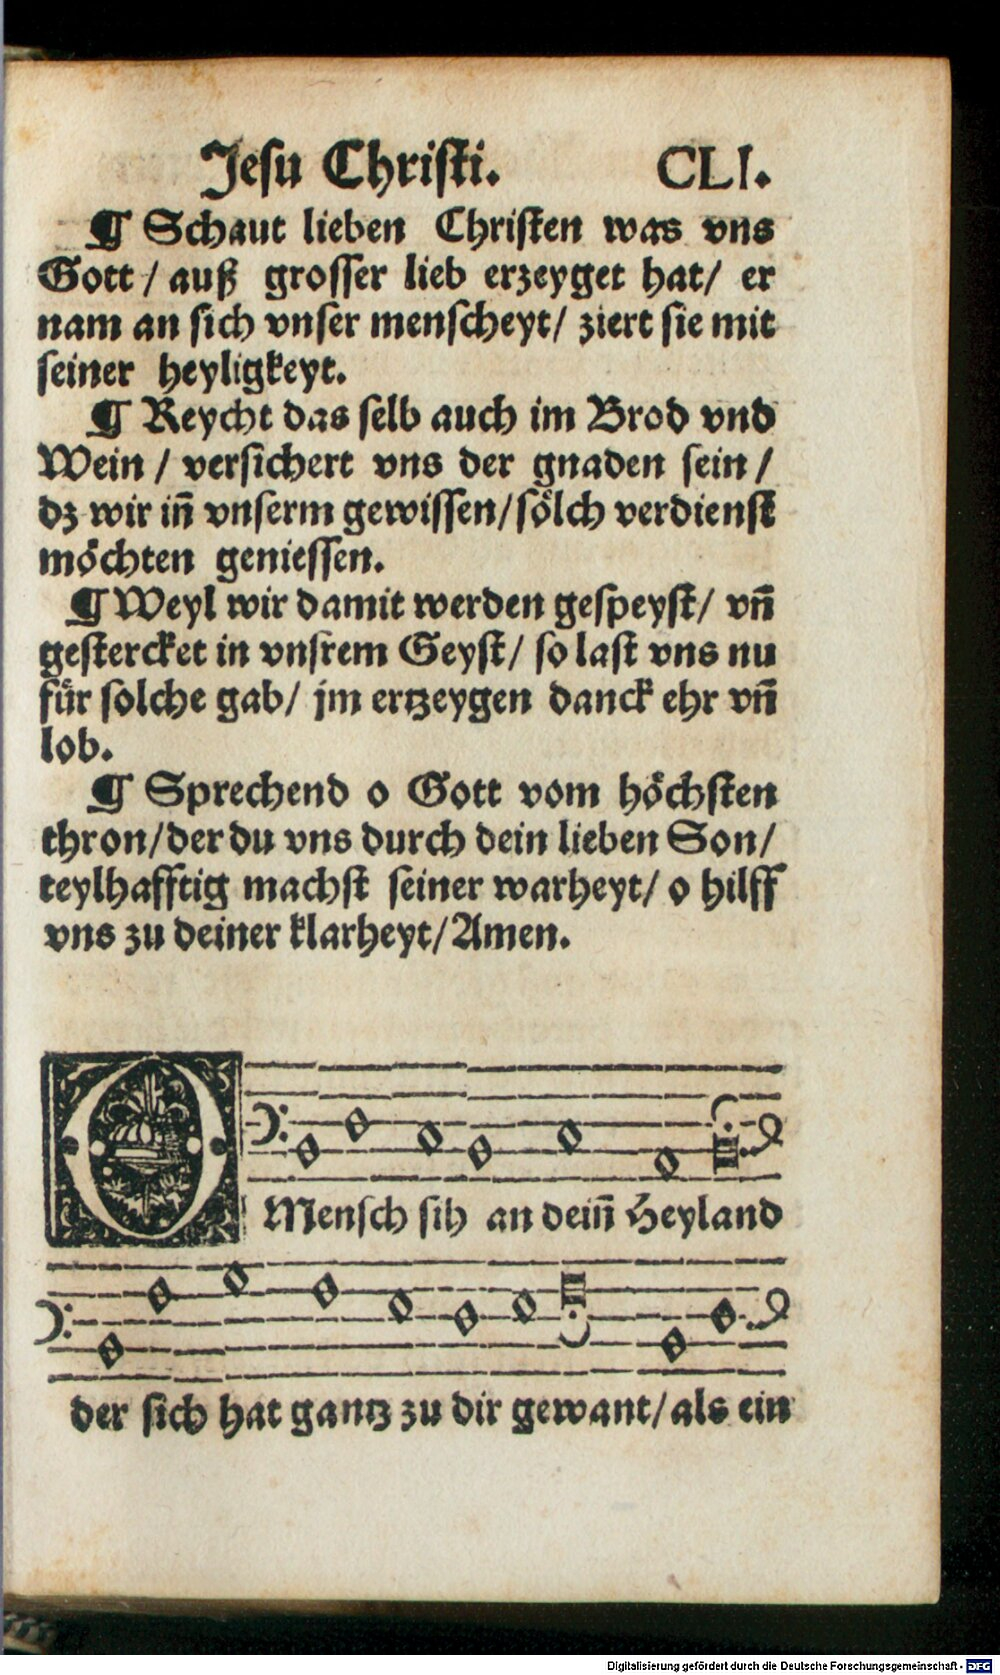 Jesu Christi. CLI.
¶ Schaut lieben Christen was vns
Gott / auß grosser lieb erzeyget hat / er
nam an sich vnser menscheyt / ziert sie mit
seiner heyligkeyt.
¶ Reycht das selb auch im Brod vnd
Wein / versichert vns der gnaden sein /
dz wir iñ vnserm gewissen / sölch verdienst
möchten geniessen.
¶ Weyl wir damit werden gespeyst / vñ
gestercket in vnsrem Geyst / so last vns nu
für solche gab / jm ertzeygen danck ehr vñ
lob.
¶ Sprechend o Gott vom höchsten
thron / der du vns durch dein lieben Son /
teylhafftig machst seiner warheyt / o hilff
vns zu deiner klarheyt / Amen.
O Mensch sih an deiñ Heyland
der sich hat gantz zu dir gewant / als ein
Digitalisierung gefördert durch die Deutsche Forschungsgemeinschaft - DFG